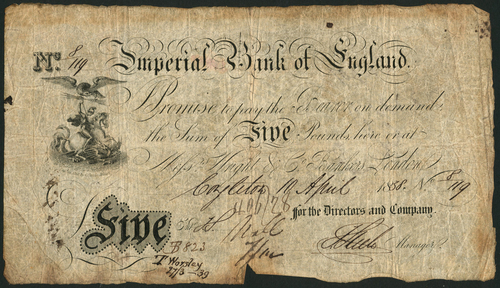 No. 719 Imperial Bank of England.
I Promise to pay the Bearer on demand
the Sum of Five Pounds here or at
Messrs. Wright & Co. Bankers London
Congleton 10 April 1838. No. 719
for the Directors and Company.
Five
B 823
Manager
T Worsley
27/3 39